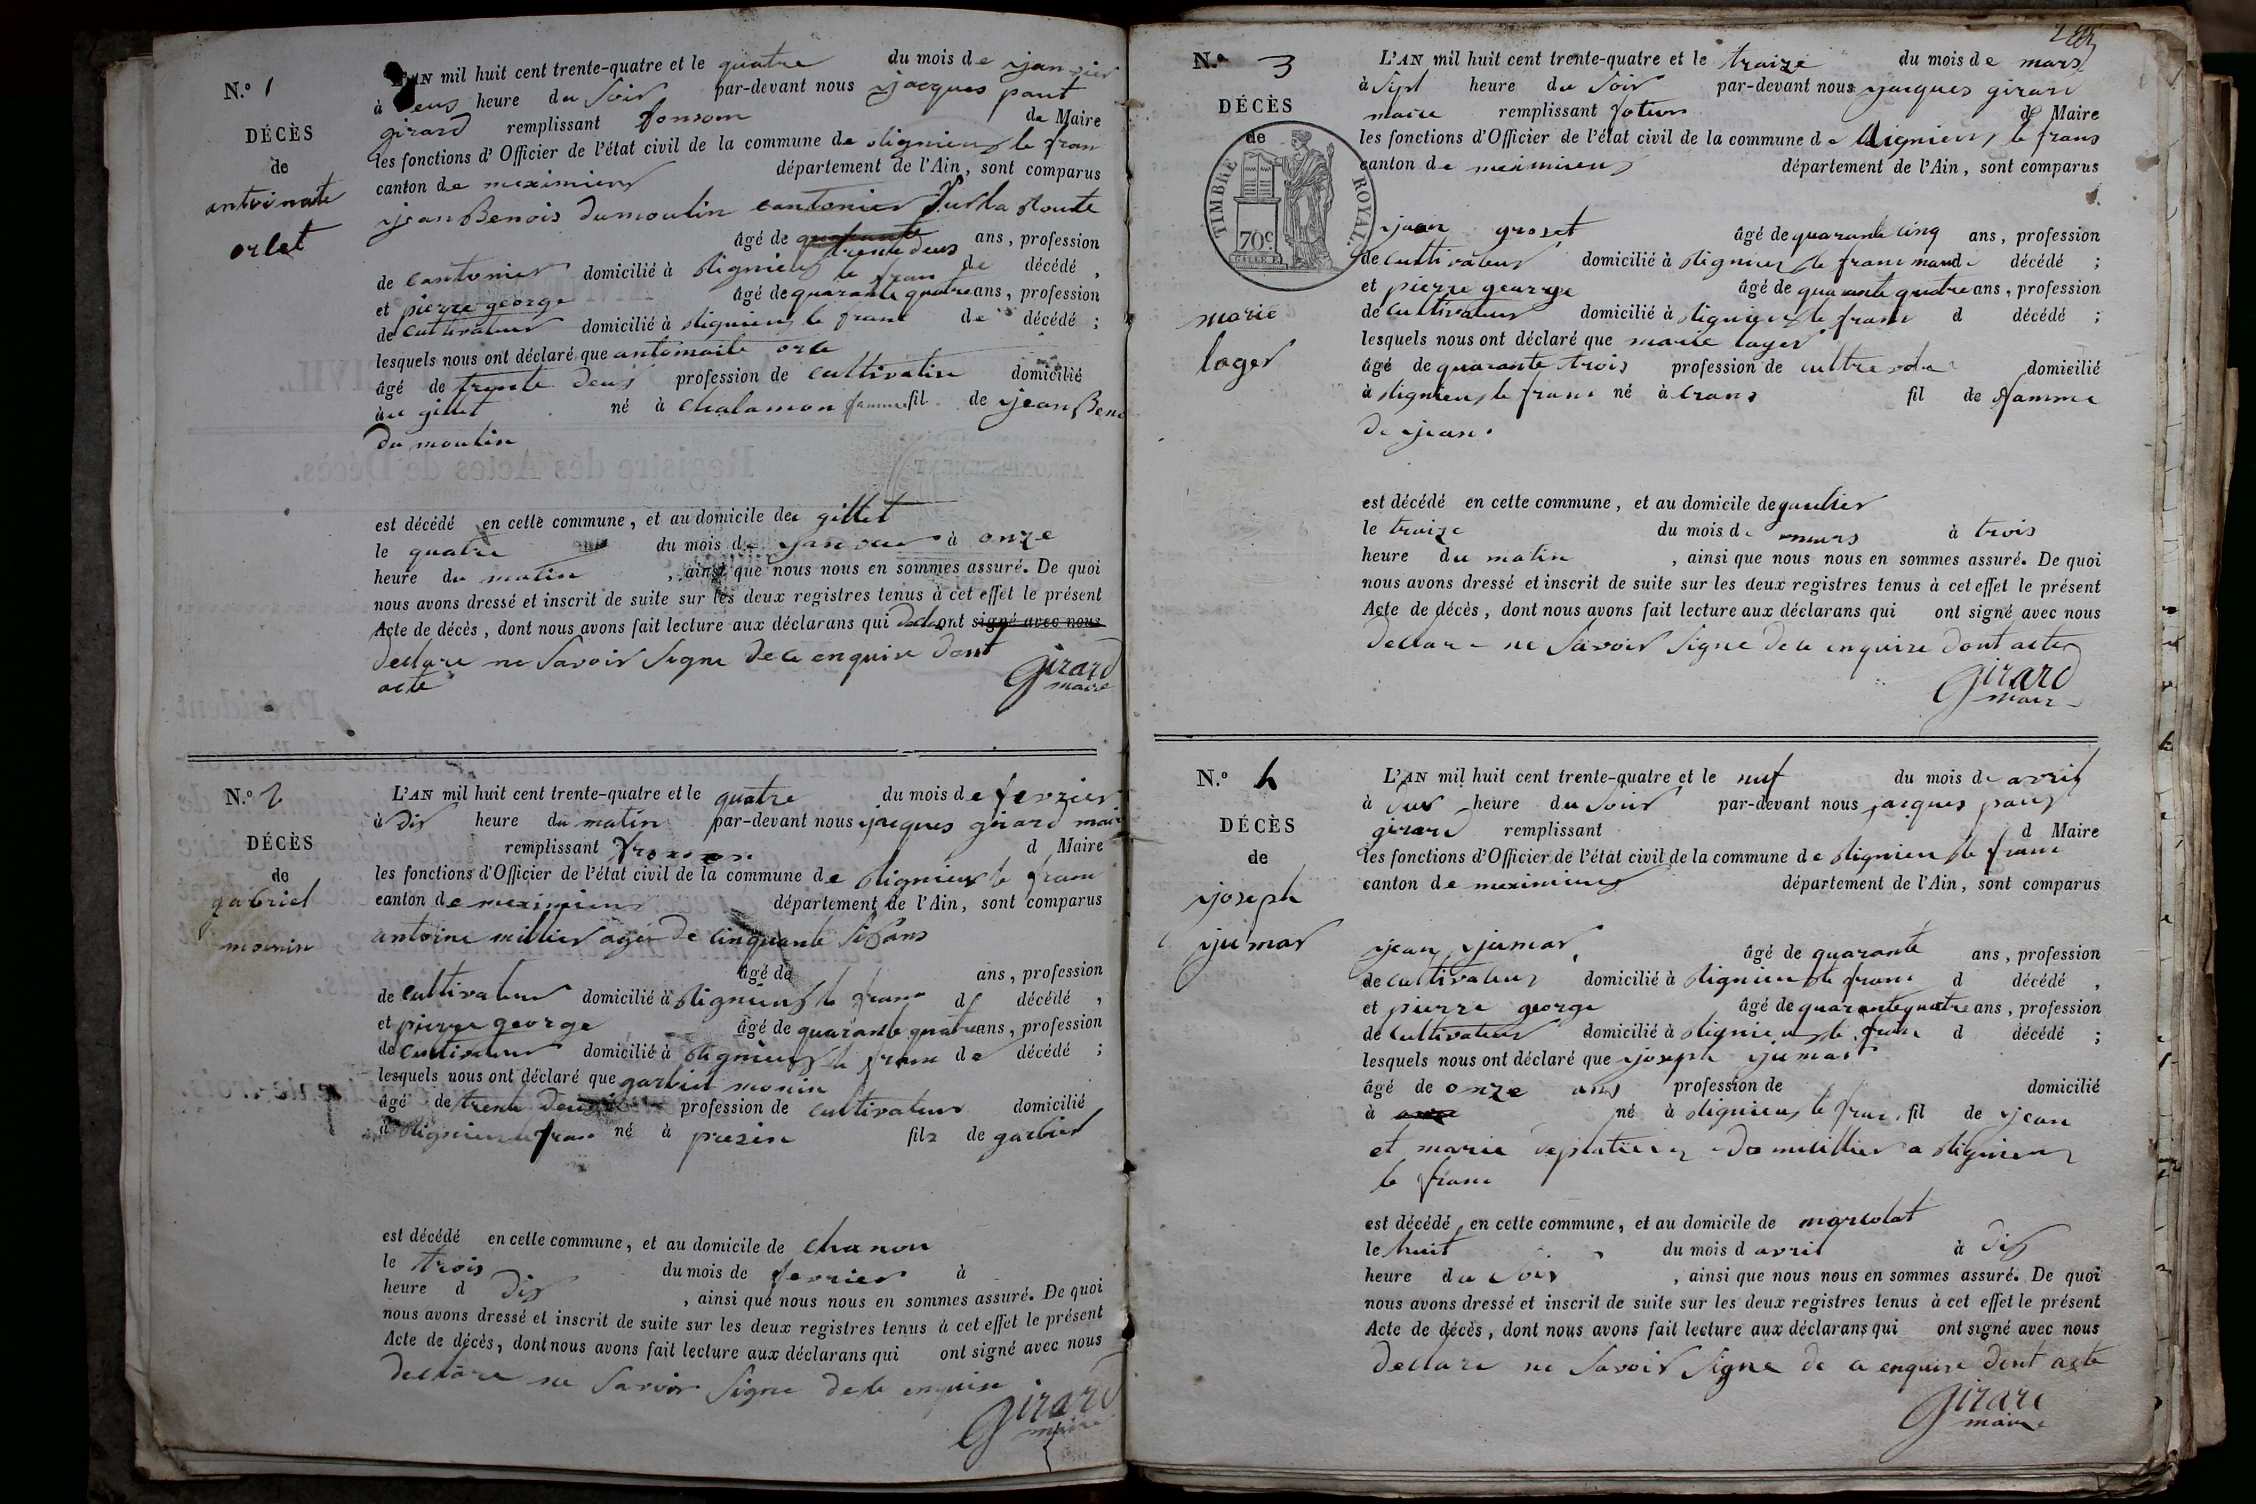 N.º 1
DÉCÈS
de
antoinate
orlet
L'AN mil huit cent trente-quatre et le quatre du mois de janvier
à deus heure du soir par-devant nous jacques paut
girard remplissant de Maire
les fonctions d'Officier de l'état civil de la commune de Rignieux le fran
canton de meximieux département de l'Ain, sont comparus
jean Benois dumoulin cantonier sur la Route
âgé de quarante trente deus ans, profession
de cantonier domicilié à Rignieux le fran de décédé,
et pierre george âgé de quarante quatre ans, profession
de cultivateur domicilié à Rignieux le franc de décédé;
lesquels nous ont déclaré que antoinaite orle
âgé de trente deus profession de cultivatin domicilié
au gillet né à chalamon famme fil de jean Beno
du moulin
est décédé en cette commune, et au domicile de gillet
le quatre du mois de janvier à onze
heure du matin, ainsi que nous nous en sommes assuré. De quoi
nous avons dressé et inscrit de suite sur les deux registres tenus à cet effet le présent
Acte de décès, dont nous avons fait lecture aux déclarans qui ont signé avec nous
declare ne savoir signe de ce enquire dont
acte
girard
maire
N.º 2
DÉCÈS
de
gabriel
monin
L'AN mil huit cent trente-quatre et le quatre du mois de fevrier
à dix heure du matin par-devant nous jacques girard mair
remplissant d Maire
les fonctions d'Officier de l'état civil de la commune de Rignieux le franc
canton de meximieux département de l'Ain, sont comparus
antoine millier agér de cinquante six ans
âgé de ans, profession
de cultivateur domicilié à Rignieux le franc d décédé,
et pierre george âgé de quarante quatre ans, profession
de cultivateur domicilié à Rignieux le franc de décédé;
lesquels nous ont déclaré que garbiel monin
âgé de trente deus profession de cultivateur domicilié
à Rignieux le fran né à prezin fils de garbiel
est décédé en cette commune, et au domicile de chanon
le trois du mois de fevrier à
heure d dix, ainsi que nous nous en sommes assuré. De quoi
nous avons dressé et inscrit de suite sur les deux registres tenus à cet effet le présent
Acte de décès, dont nous avons fait lecture aux déclarans qui ont signé avec nous
declare ne savoir signe de ce enquire
girard
maire
N.º 3
DÉCÈS
de
TIMBRE ROYAL.
70c
marie
lager
L'AN mil huit cent trente-quatre et le traize du mois de mars
à sept heure du soir par-devant nous jacques girard
maire remplissant de Maire
les fonctions d'Officier de l'état civil de la commune de Rignieux le franc
canton de meximieux département de l'Ain, sont comparus
jean groset âgé de quarante cinq ans, profession
de cultivateur domicilié à Rignieux le franc décédé;
et pierre gearge âgé de quarante quatre ans, profession
de cultivateur domicilié à Rignieux le franc d décédé;
lesquels nous ont déclaré que marie lager
âgé de quarante trois profession de domicilié
à Rignieux le franc né à crans fil de famme
de jean
est décédé en cette commune, et au domicile de gaulier
le traize du mois de mars à trois
heure du matin, ainsi que nous nous en sommes assuré. De quoi
nous avons dressé et inscrit de suite sur les deux registres tenus à cet effet le présent
Acte de décès, dont nous avons fait lecture aux déclarans qui ont signé avec nous
declare ne savoir signe de ce enquire dont acte
girard
maire
N.º 4
DÉCÈS
de
joseph
jumar
L'AN mil huit cent trente-quatre et le nuf du mois de avril
à heure du soir par-devant nous jacques paus
girard remplissant d Maire
les fonctions d'Officier de l'état civil de la commune de Rignieux le franc
canton de meximieux département de l'Ain, sont comparus
jean jumar, âgé de quarante ans, profession
de cultivateur domicilié à Rignieux le franc d décédé,
et pierre george âgé de quarante quatre ans, profession
de cultivateur domicilié à Rignieux le franc d décédé;
lesquels nous ont déclaré que joseph jumar
âgé de onze ans profession de domicilié
à né à Rignieux le franc fil de jean
et marie domicillier a Rignieux
le franc
est décédé en cette commune, et au domicile de marcolat
le huit du mois d avril à dix
heure du soir, ainsi que nous nous en sommes assuré. De quoi
nous avons dressé et inscrit de suite sur les deux registres tenus à cet effet le présent
Acte de décès, dont nous avons fait lecture aux déclarans qui ont signé avec nous
declare ne savoir signe de ce enquire dont acte
girard
maire